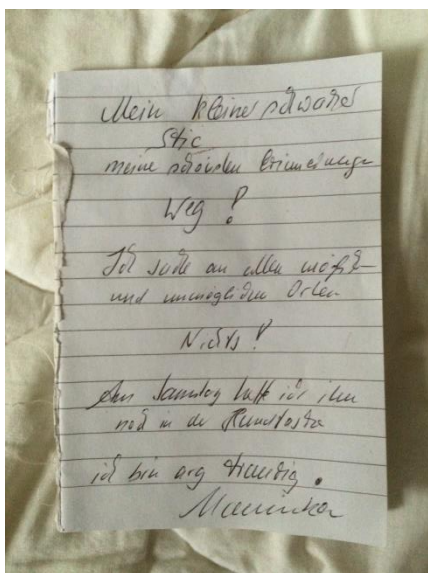 Mein kleiner schwarzer
Stic
meine schönsten Erinnerungen
Weg!
Ich suche an allen mögli-
und unmöglichen Orten
Nichts!
Am Samstag hatte ich ihn
noch in der
ich bin arg traurig.